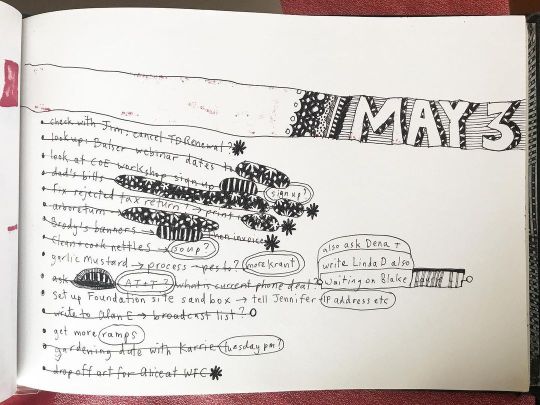 MAY 3
• check with Jim: cancel TD Renewal?
• look up: Baker webinar dates to
• look at CoE workshop sign up sign up?
• dad's bills
• fix rejected tax return! → print
• arboretum
• Brody's banners → on invoice
• clean + cook nettles → soup?
• garlic mustard → process → pesto? more kraut
• ask AT+T? what is current phone deal?
also ask Dena T
write Linda D also
waiting on Blake
• set up Foundation site sandbox → tell Jennifer IP address etc
• write to Alan E → broadcast list?
• get more ramps
• gardening date with Karrie tuesday pm?
• drop off art for at WFC